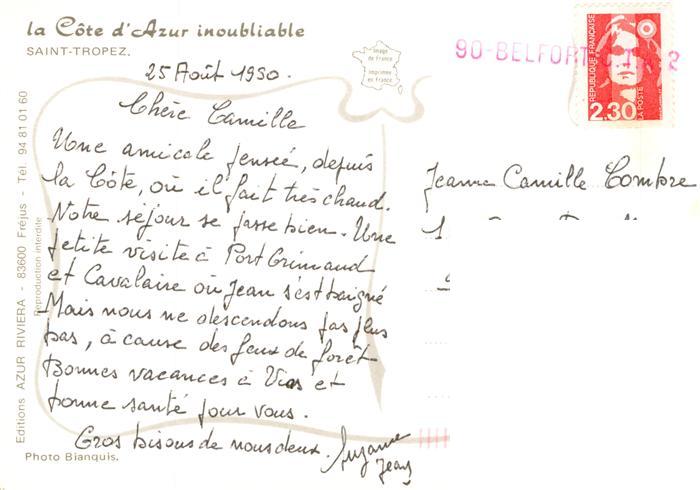 la Côte d'Azur inoubliable
SAINT-TROPEZ.
25 Août 1990.
Chère Camille
Une amicale pensée, depuis
la Côte, où il fait très chaud.
Notre séjour se passe bien. Une
petite visite à Port Grimaud
et Cavalaire où Jean s'est baigné
Mais nous ne descendons pas plus
bas, à cause des feux de forêt
Bonnes vacances à Vias et
bonne santé pour vous.
Gros bisous de nous deux.
Suzanne
Jean
Image
de France
Imprimée
en France
90-BELFORT
REPUBLIQUE FRANÇAISE
LA POSTE
2,30
Jeanne Camille Combre
1
Editions AZUR RIVIERA - 83600 Fréjus - Tél. 94 81 01 60
Reproduction interdite
Photo Bianquis.